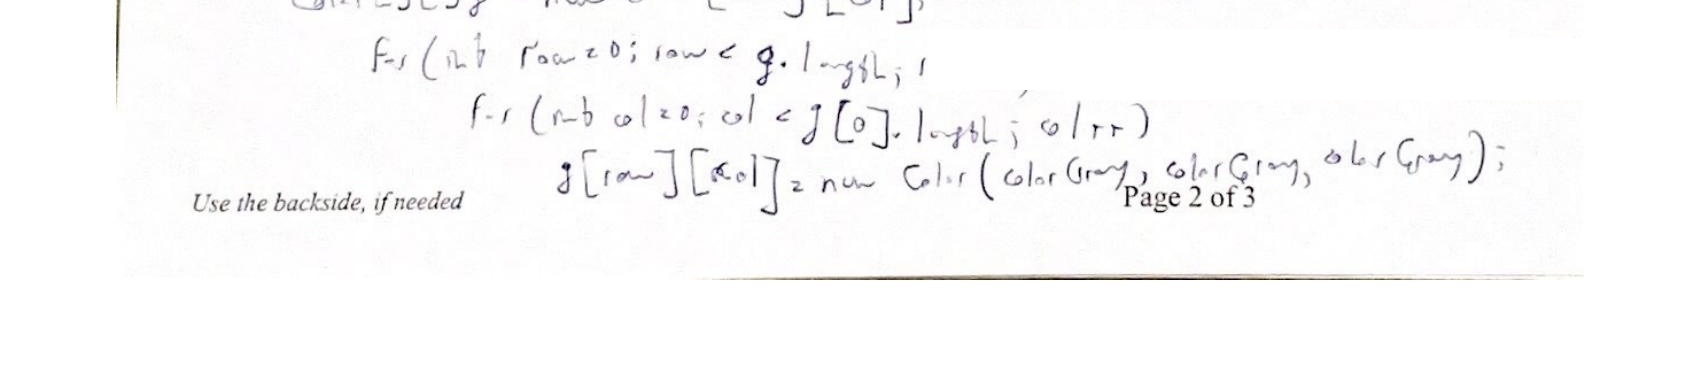 for (int row = 0; row < g.length; r
for (int col = 0; col < g[0].length; col++)
g[row][col] = new Color(colorGray, colorGray, colorGray);
Use the backside, if needed
Page 2 of 3